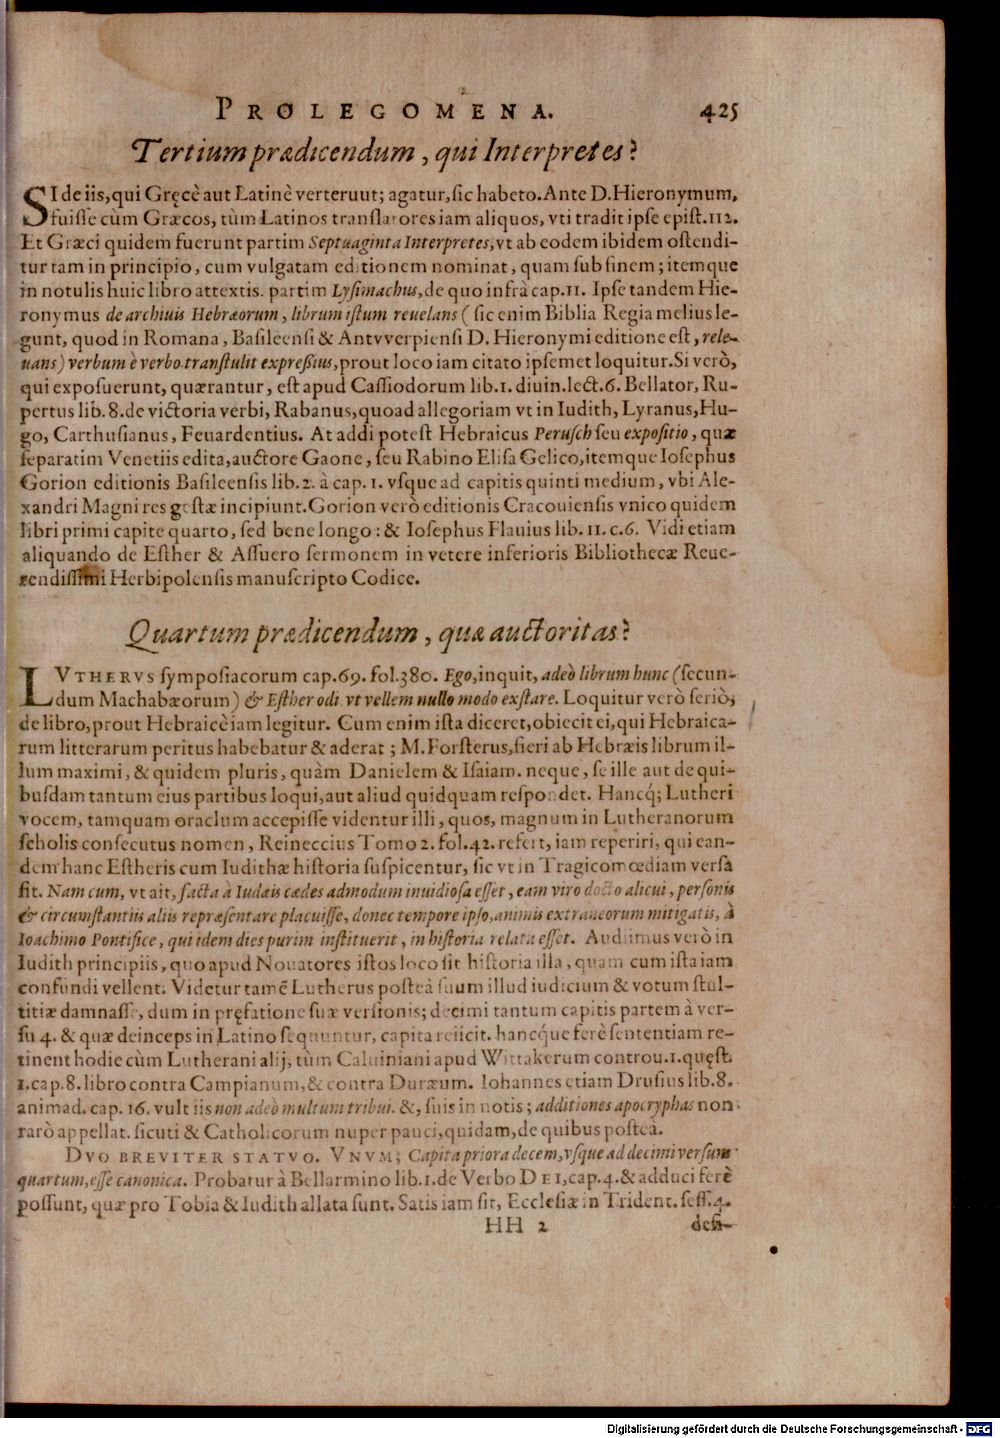 PROLEGOMENA. 425
Tertium prædicendum, qui Interpretes?
SI de iis, qui Gręcè aut Latinè verteruut; agatur, sic habeto. Ante D. Hieronymum,
fuisse cùm Græcos, tùm Latinos translatores iam aliquos, vti tradit ipse epist. 112.
Et Græci quidem fuerunt partim Septuaginta Interpretes, vt ab eodem ibidem ostendi-
tur tam in principio, cum vulgatam editionem nominat, quam sub finem; itemque
in notulis huic libro attextis. partim Lysimachus, de quo infrà cap. 11. Ipse tandem Hie-
ronymus de archiuis Hebræorum, librum istum reuelans (sic enim Biblia Regia melius le-
gunt, quod in Romana, Basileensi & Antvverpiensi D. Hieronymi editione est, rele-
uans) verbum è verbo transtulit expreßius, prout loco iam citato ipsemet loquitur. Si verò,
qui exposuerunt, quærantur, est apud Cassiodorum lib. 1. diuin. lect. 6. Bellator, Ru-
pertus lib. 8. de victoria verbi, Rabanus, quoad allegoriam vt in Iudith, Lyranus, Hu-
go, Carthusianus, Feuardentius. At addi potest Hebraicus Perusch seu expositio, quæ
separatim Venetiis edita, auctore Gaone, seu Rabino Elisa Gelico, itemque Iosephus
Gorion editionis Basileensis lib. 2. à cap. 1. vsque ad capitis quinti medium, vbi Ale-
xandri Magni res gestæ incipiunt. Gorion verò editionis Cracouiensis vnico quidem
libri primi capite quarto, sed bene longo: & Iosephus Flauius lib. 11. c. 6. Vidi etiam
aliquando de Esther & Assuero sermonem in vetere inferioris Bibliothecæ Reue-
rendissimi Herbipolensis manuscripto Codice.
Quartum prædicendum, quæ auctoritas?
LVTHERVS symposiacorum cap. 69. fol. 380. Ego, inquit, adeò librum hunc (secun-
dum Machabæorum) & Esther odi, vt vellem nullo modo exstare. Loquitur verò seriò,
de libro, prout Hebraicè iam legitur. Cum enim ista diceret, obiecit ei, qui Hebraica-
rum litterarum peritus habebatur & aderat; M. Forsterus, fieri ab Hebræis librum il-
lum maximi, & quidem pluris, quàm Danielem & Isaiam. neque, se ille aut de qui-
busdam tantum eius partibus loqui, aut aliud quidquam respondet. Hancq́; Lutheri
vocem, tamquam oraclum accepisse videntur illi, quos, magnum in Lutheranorum
scholis consecutus nomen, Reineccius Tomo 2. fol. 42. refert, iam reperiri, qui ean-
dem hanc Estheris cum Iudithæ historia suspicentur, sic vt in Tragicomœdiam versa
sit. Nam cum, vt ait, facta à Iudæis cædes admodum inuidiosa esset, eam viro docto alicui, personis
& circumstantiis aliis repræsentare placuisse, donec tempore ipso, animis extraneorum mitigatis, à
Ioachimo Pontifice, qui idem dies purim instituerit, in historia relata esset. Audiimus verò in
Iudith principiis, quo apud Nouatores istos loco sit historia illa, quam cum ista iam
confundi vellent. Videtur tamē Lutherus posteà suum illud iudicium & votum stul-
titiæ damnasse, dum in pręfatione suæ versionis; decimi tantum capitis partem à ver-
su 4. & quæ deinceps in Latino sequuntur, capita reiicit. hancq́ue ferè sententiam re-
tinent hodie cùm Lutherani alij, tùm Caluiniani apud Wittakerum controu. 1. quęst.
1. cap. 8. libro contra Campianum, & contra Duræum. Iohannes etiam Drusius lib. 8.
animad. cap. 16. vult iis non adeò multum tribui. &, suis in notis; additiones apocryphas non
rarò appellat. sicuti & Catholicorum nuper pauci, quidam, de quibus posteà.
DVO BREVITER STATVO. VNVM; Capita priora decem, vsque ad decimi versum
quartum, esse canonica. Probatur à Bellarmino lib. 1. de Verbo DEI, cap. 4. & adduci ferè
possunt, quæ pro Tobia & Iudith allata sunt. Satis iam sit, Ecclesiæ in Trident. sess. 4.
HH 2 desi-
Digitalisierung gefördert durch die Deutsche Forschungsgemeinschaft - DFG